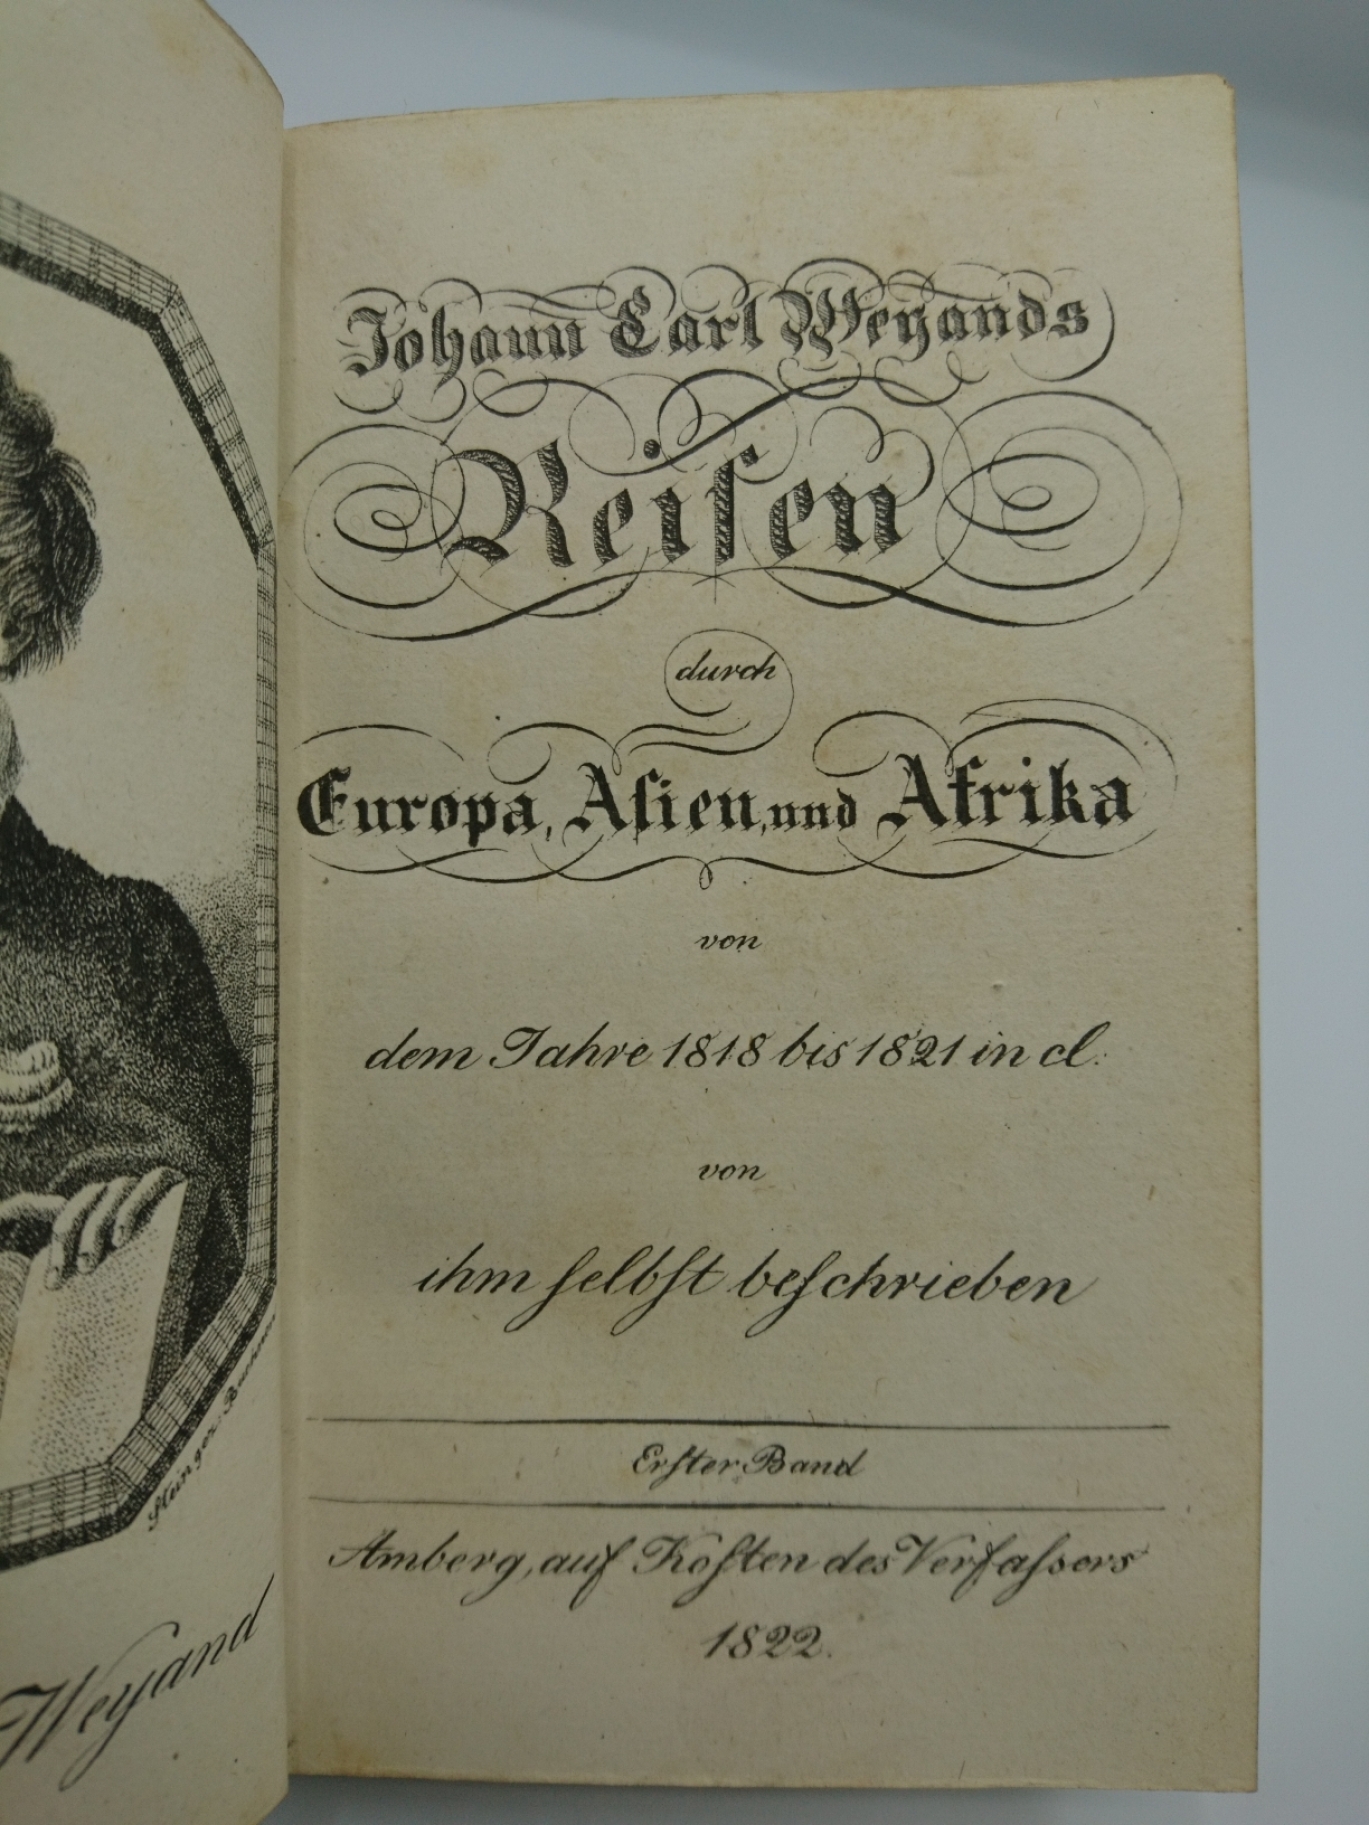 Johann Carl Weyands
Reiſen
durch
Europa, Aſien, und Afrika
von
dem Jahre 1818 bis 1821 in cl.
von
ihm ſelbſt beſchrieben
Erſter Band
Amberg, auf Koſten des Verfaſsers
1822.
Weyand